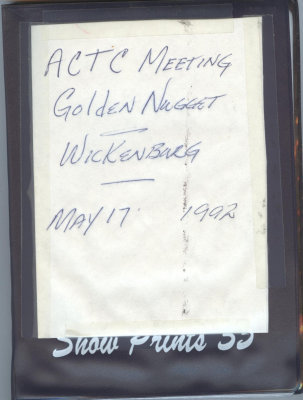 ACTC MEETING
GOLDEN NUGGET
WICKENBURG
MAY 17 1992
Show Prints 35